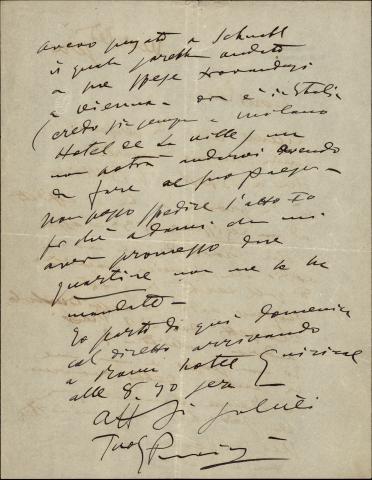 avevo pregato a Schnabl
il quale sarebbe andato
a sue spese trovandosi
a Vienna - ora è in Italia
(credo sia sempre a Milano
Hotel de la Ville) ma
non potrà andarvi avendo
da fare
non posso spedire l'atto IIo
perchè Adami che mi
aveva promesso due
quartine non me le ha
mandate -
Io parto di qui domenica
col diretto arrivando
a Roma hotel Quirinale
alle 8.40 sera
aff saluti
Tuo GPuccini